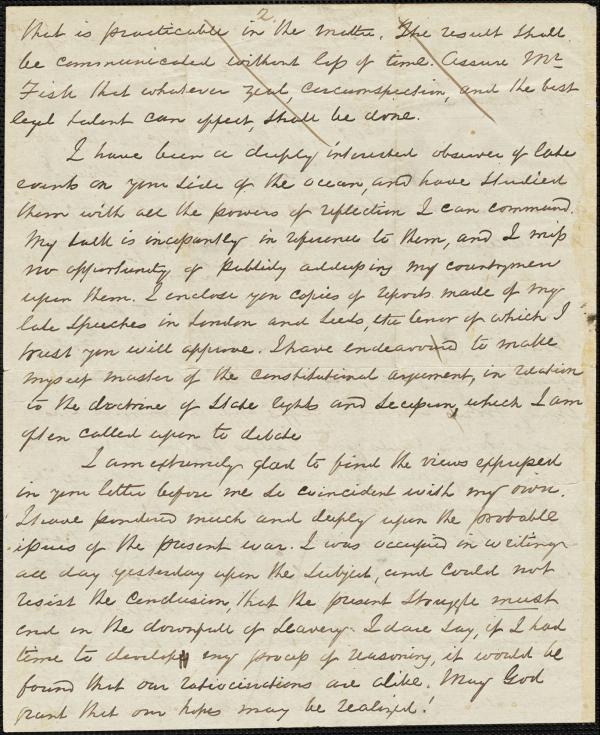 2.
that is practicable in the matter. The result shall
be communicated without loss of time. Assure Mr
Fisk that whatever zeal, circumspection, and the best
legal talent can effect, shall be done.
I have been a deeply interested observer of late
events on your side of the ocean, and have studied
them with all the powers of reflection I can command.
My talk is incessantly in reference to them, and I miss
no opportunity of publicly addressing my countrymen
upon them. I enclose you copies of reports made of my
late speeches in London and Leeds, the tenor of which I
trust you will approve. I have endeavoured to make
myself master of the constitutional argument, in relation
to the doctrine of State rights and secession, which I am
often called upon to debate
I am extremely glad to find the views expressed
in your letter before me so coincident with my own.
I have pondered much and deeply upon the probable
issues of the present war. I was occupied in writing
all day yesterday upon the subject, and could not
resist the conclusion, that the present struggle must
end in the downfall of slavery. I dare say, if I had
time to develop my process of reasoning, it would be
found that our ratiocinations are alike. May God
grant that our hopes may be realized!